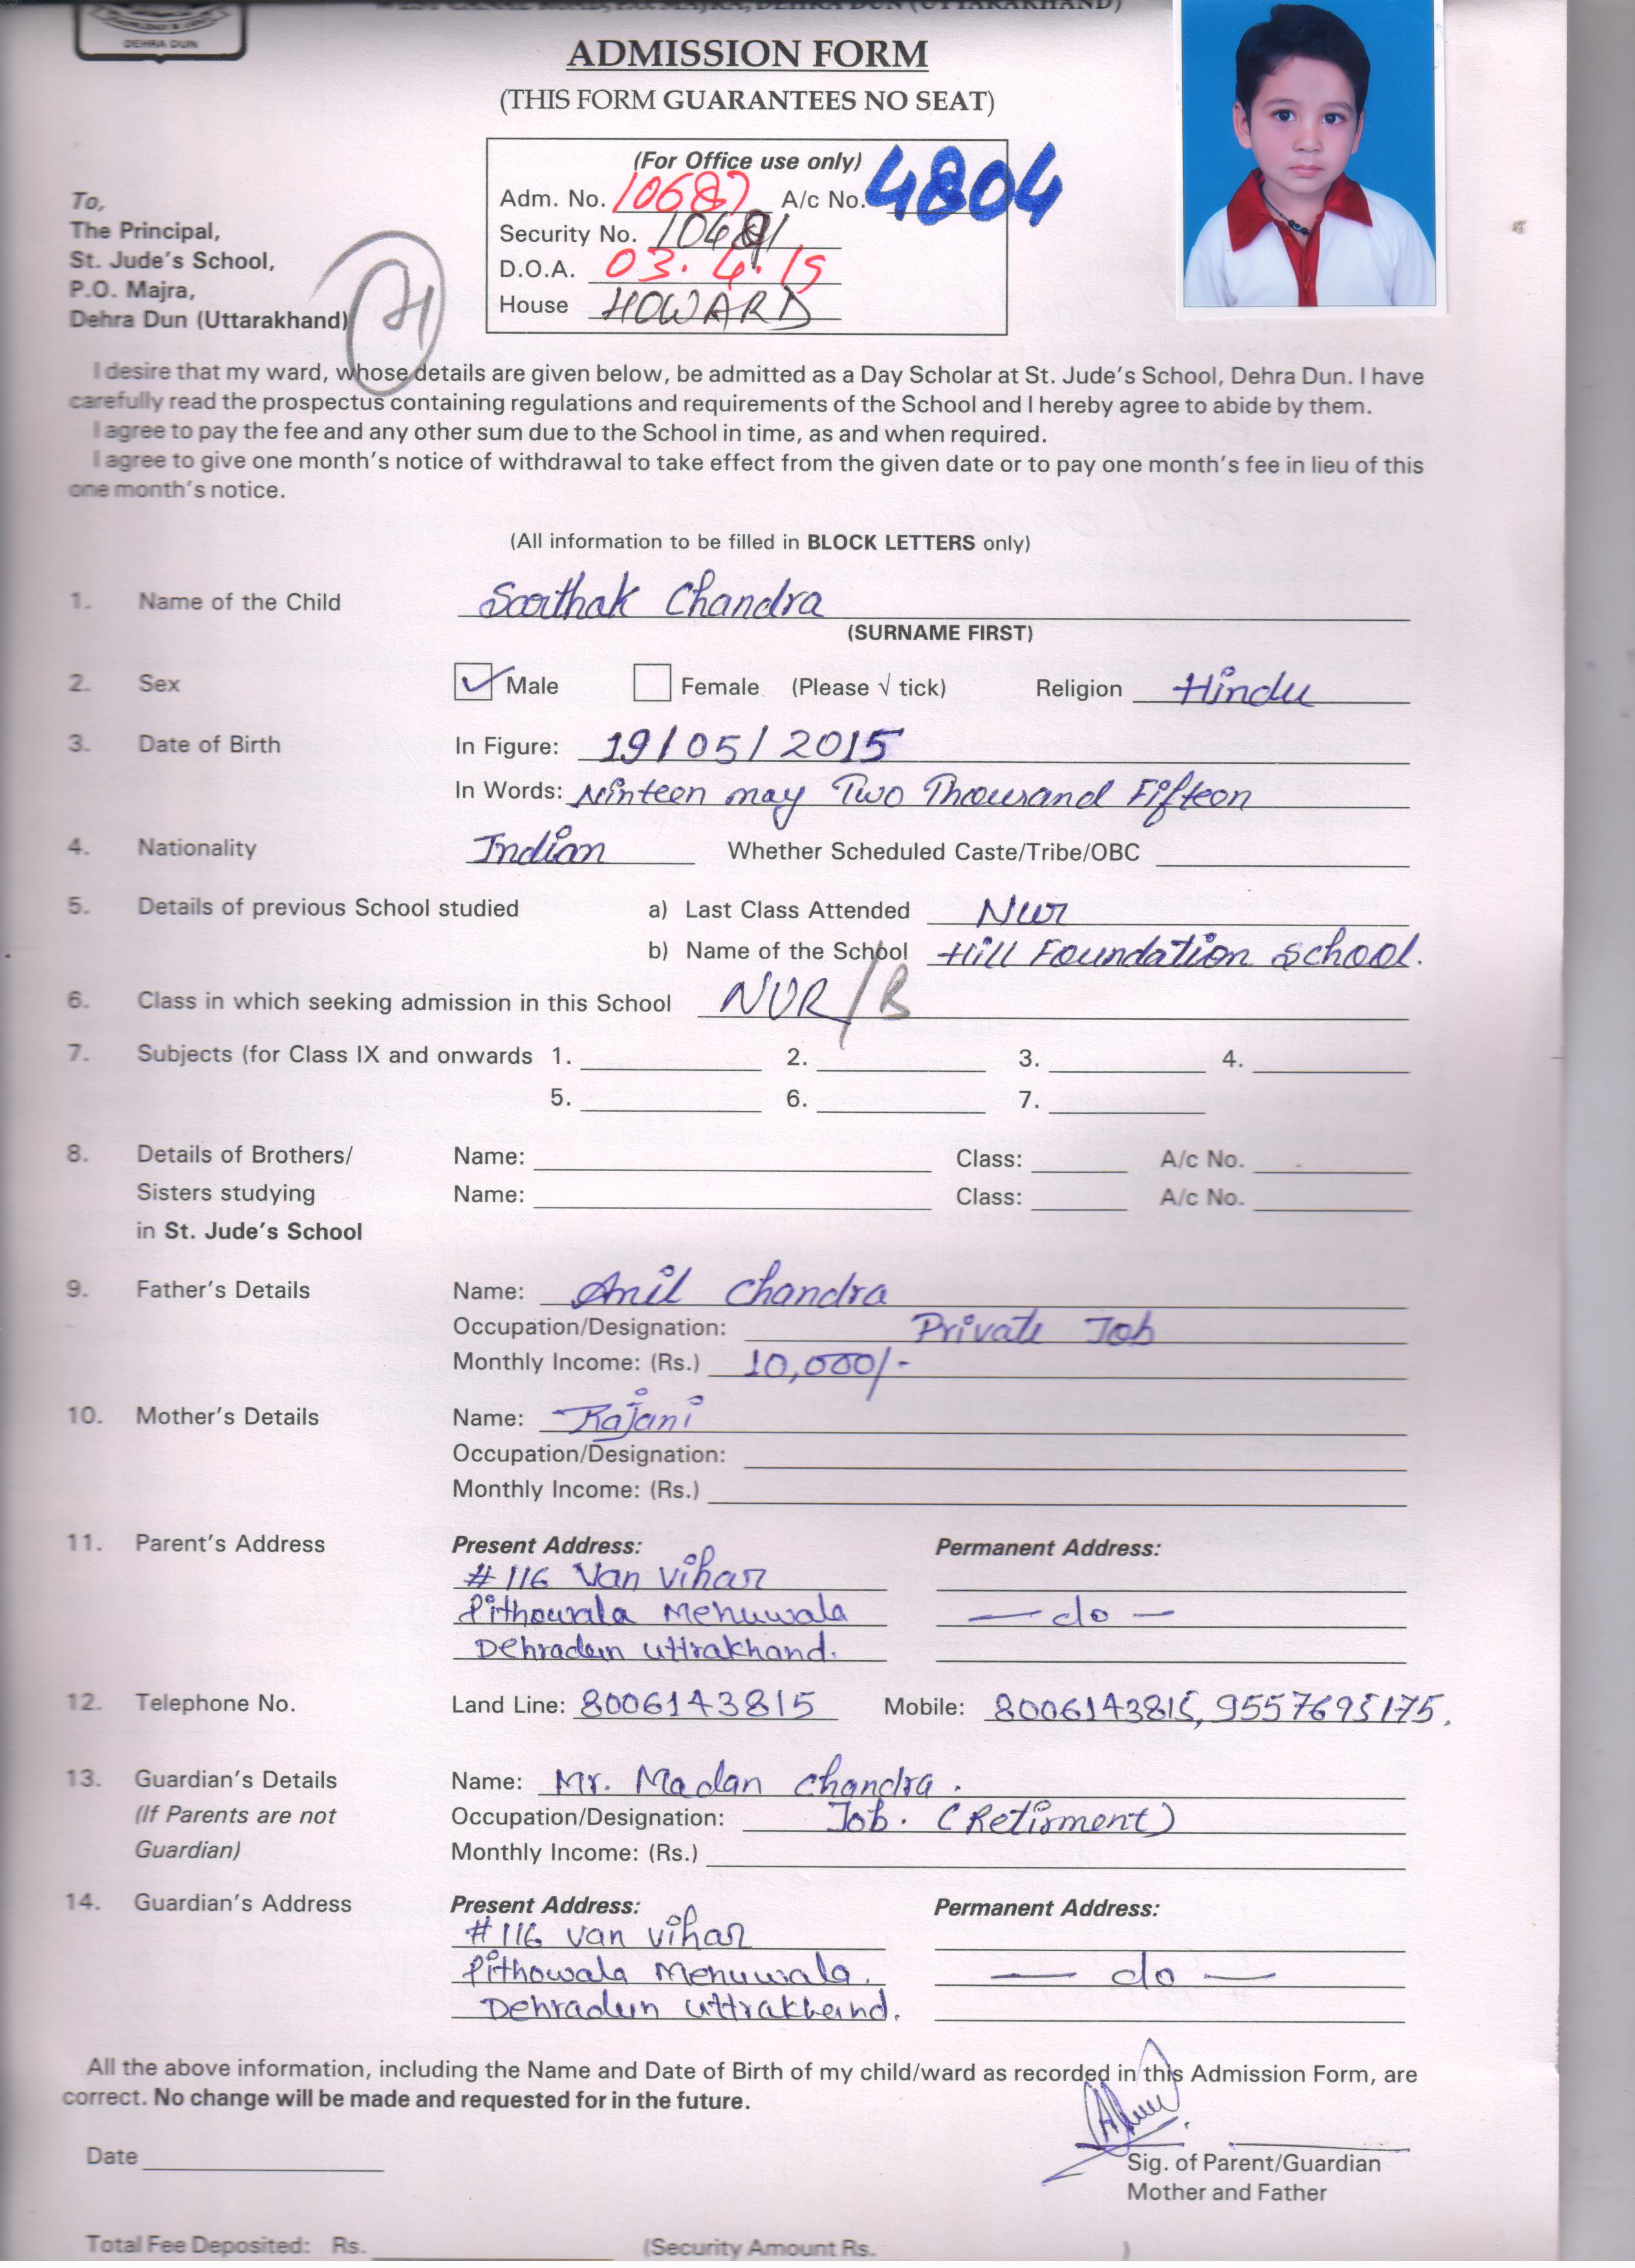 WEST CANAL ROAD, P.O. MAJRA, DEHRA DUN (UTTARAKHAND)
DEHRA DUN
ADMISSION FORM
(THIS FORM GUARANTEES NO SEAT)
(For Office use only)
Adm. No. 10687 A/c No. 4804
Security No.
D.O.A. 03.4.19
House HOWARD
To,
The Principal,
St. Jude's School,
P.O. Majra,
Dehra Dun (Uttarakhand)
I desire that my ward, whose details are given below, be admitted as a Day Scholar at St. Jude's School, Dehra Dun. I have
carefully read the prospectus containing regulations and requirements of the School and I hereby agree to abide by them.
I agree to pay the fee and any other sum due to the School in time, as and when required.
I agree to give one month's notice of withdrawal to take effect from the given date or to pay one month's fee in lieu of this
one month's notice.
(All information to be filled in BLOCK LETTERS only)
1. Name of the Child Saarthak Chandra
(SURNAME FIRST)
2. Sex Male Female (Please √ tick) Religion Hindu
3. Date of Birth In Figure: 19/05/2015
In Words: Ninteen may Two Thousand Fifteen
4. Nationality Indian Whether Scheduled Caste/Tribe/OBC
5. Details of previous School studied a) Last Class Attended Nur
b) Name of the School Hill Foundation School.
6. Class in which seeking admission in this School NUR/B
7. Subjects (for Class IX and onwards 1. 2. 3. 4.
5. 6. 7.
8. Details of Brothers/ Name: Class: A/c No.
Sisters studying Name: Class: A/c No.
in St. Jude's School
9. Father's Details Name: Anil Chandra
Occupation/Designation: Private Job
Monthly Income: (Rs.) 10,000/-
10. Mother's Details Name: Rajani
Occupation/Designation:
Monthly Income: (Rs.)
11. Parent's Address Present Address: Permanent Address:
# 116 Van Vihar
Pithowala Mehuwala — do —
Dehradun Uttrakhand.
12. Telephone No. Land Line: 8006143815 Mobile: 8006143815, 9557695175.
13. Guardian's Details Name: Mr. Madan Chandra.
(If Parents are not Occupation/Designation: Job. (Retirment)
Guardian) Monthly Income: (Rs.)
14. Guardian's Address Present Address: Permanent Address:
# 116 Van Vihar
Pithowala Mehuwala. — do —
Dehradun Uttrakhand.
All the above information, including the Name and Date of Birth of my child/ward as recorded in this Admission Form, are
correct. No change will be made and requested for in the future.
Date
Sig. of Parent/Guardian
Mother and Father
Total Fee Deposited: Rs. (Security Amount Rs. )